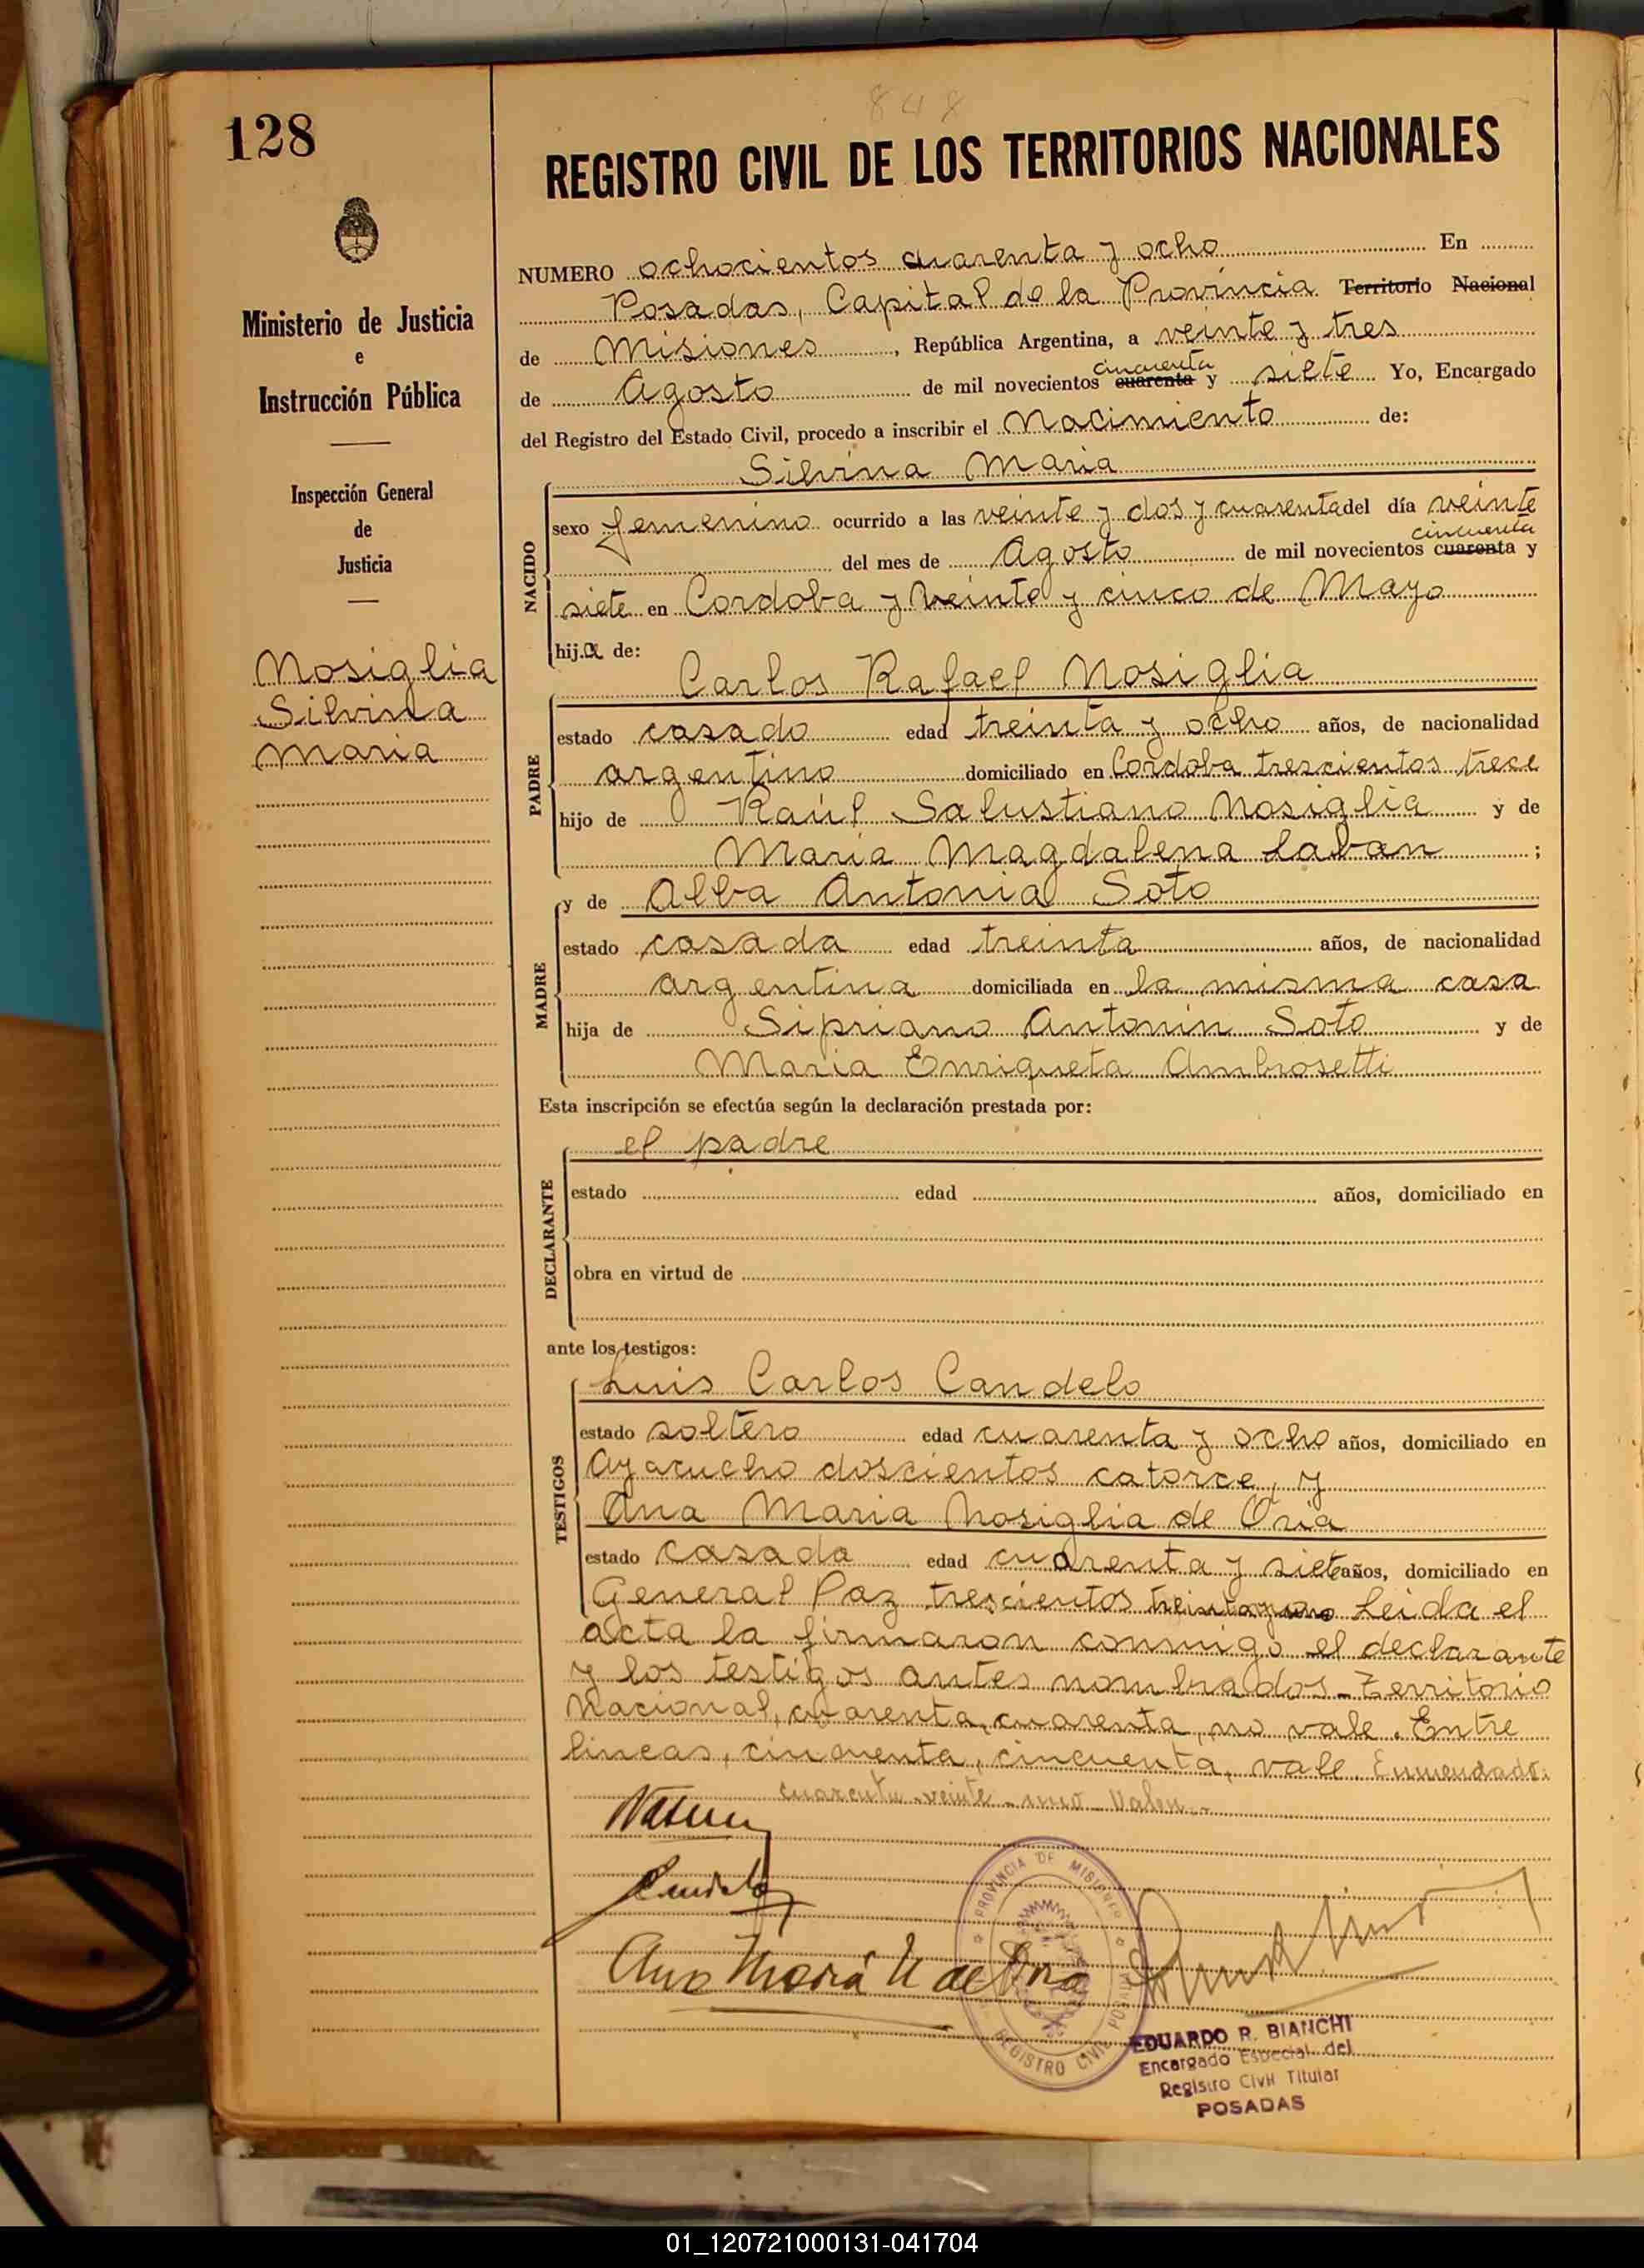 848
128
REGISTRO CIVIL DE LOS TERRITORIOS NACIONALES
Ministerio de Justicia
e
Instrucción Pública
Inspección General
de
Justicia
Nosiglia
Silvina
Maria
NUMERO ochocientos cuarenta y ocho En
Posadas, Capital de la Provincia Territorio Nacional
de Misiones, República Argentina, a veinte y tres
cincuenta
de Agosto de mil novecientos cuarenta y siete Yo, Encargado
del Registro del Estado Civil, procedo a inscribir el Nacimiento de:
NACIDO
Silvina Maria
sexo femenino ocurrido a las veinte y dos y cuarenta del día veinte
cincuenta
del mes de Agosto de mil novecientos cuarenta y
siete en Cordoba y veinte y cinco de Mayo
hija de:
PADRE
Carlos Rafael Nosiglia
estado casado edad treinta y ocho años, de nacionalidad
argentino domiciliado en Cordoba trescientos trece
hijo de Raúl Salustiano Nosiglia y de
Maria Magdalena Laban;
MADRE
y de Alba Antonia Soto
estado casada edad treinta años, de nacionalidad
argentina domiciliada en la misma casa
hija de Sipriano Antonin Soto y de
Maria Enriqueta Ambrosetti
Esta inscripción se efectúa según la declaración prestada por:
DECLARANTE
el padre
estado edad años, domiciliado en
obra en virtud de
ante los testigos:
TESTIGOS
Luis Carlos Candelo
estado soltero edad cuarenta y ocho años, domiciliado en
Ayacucho doscientos catorce, y
Ana Maria Nosiglia de Oria
estado casada edad cuarenta y siete años, domiciliado en
General Paz trescientos treinta y uno Leida el
acta la firmaron conmigo el declarante
y los testigos antes nombrados - Territorio
Nacional, cuarenta, cuarenta, no vale. Entre
lineas, cincuenta, cincuenta, vale. Enmendado:
cuarenta - veinte - uno - Valen.-
Candelo
Ana Maria N de Oria
PROVINCIA DE MISIONES
REGISTRO CIVIL POSADAS
EDUARDO R. BIANCHI
Encargado Especial del
Registro Civil Titular
POSADAS
01_120721000131-041704